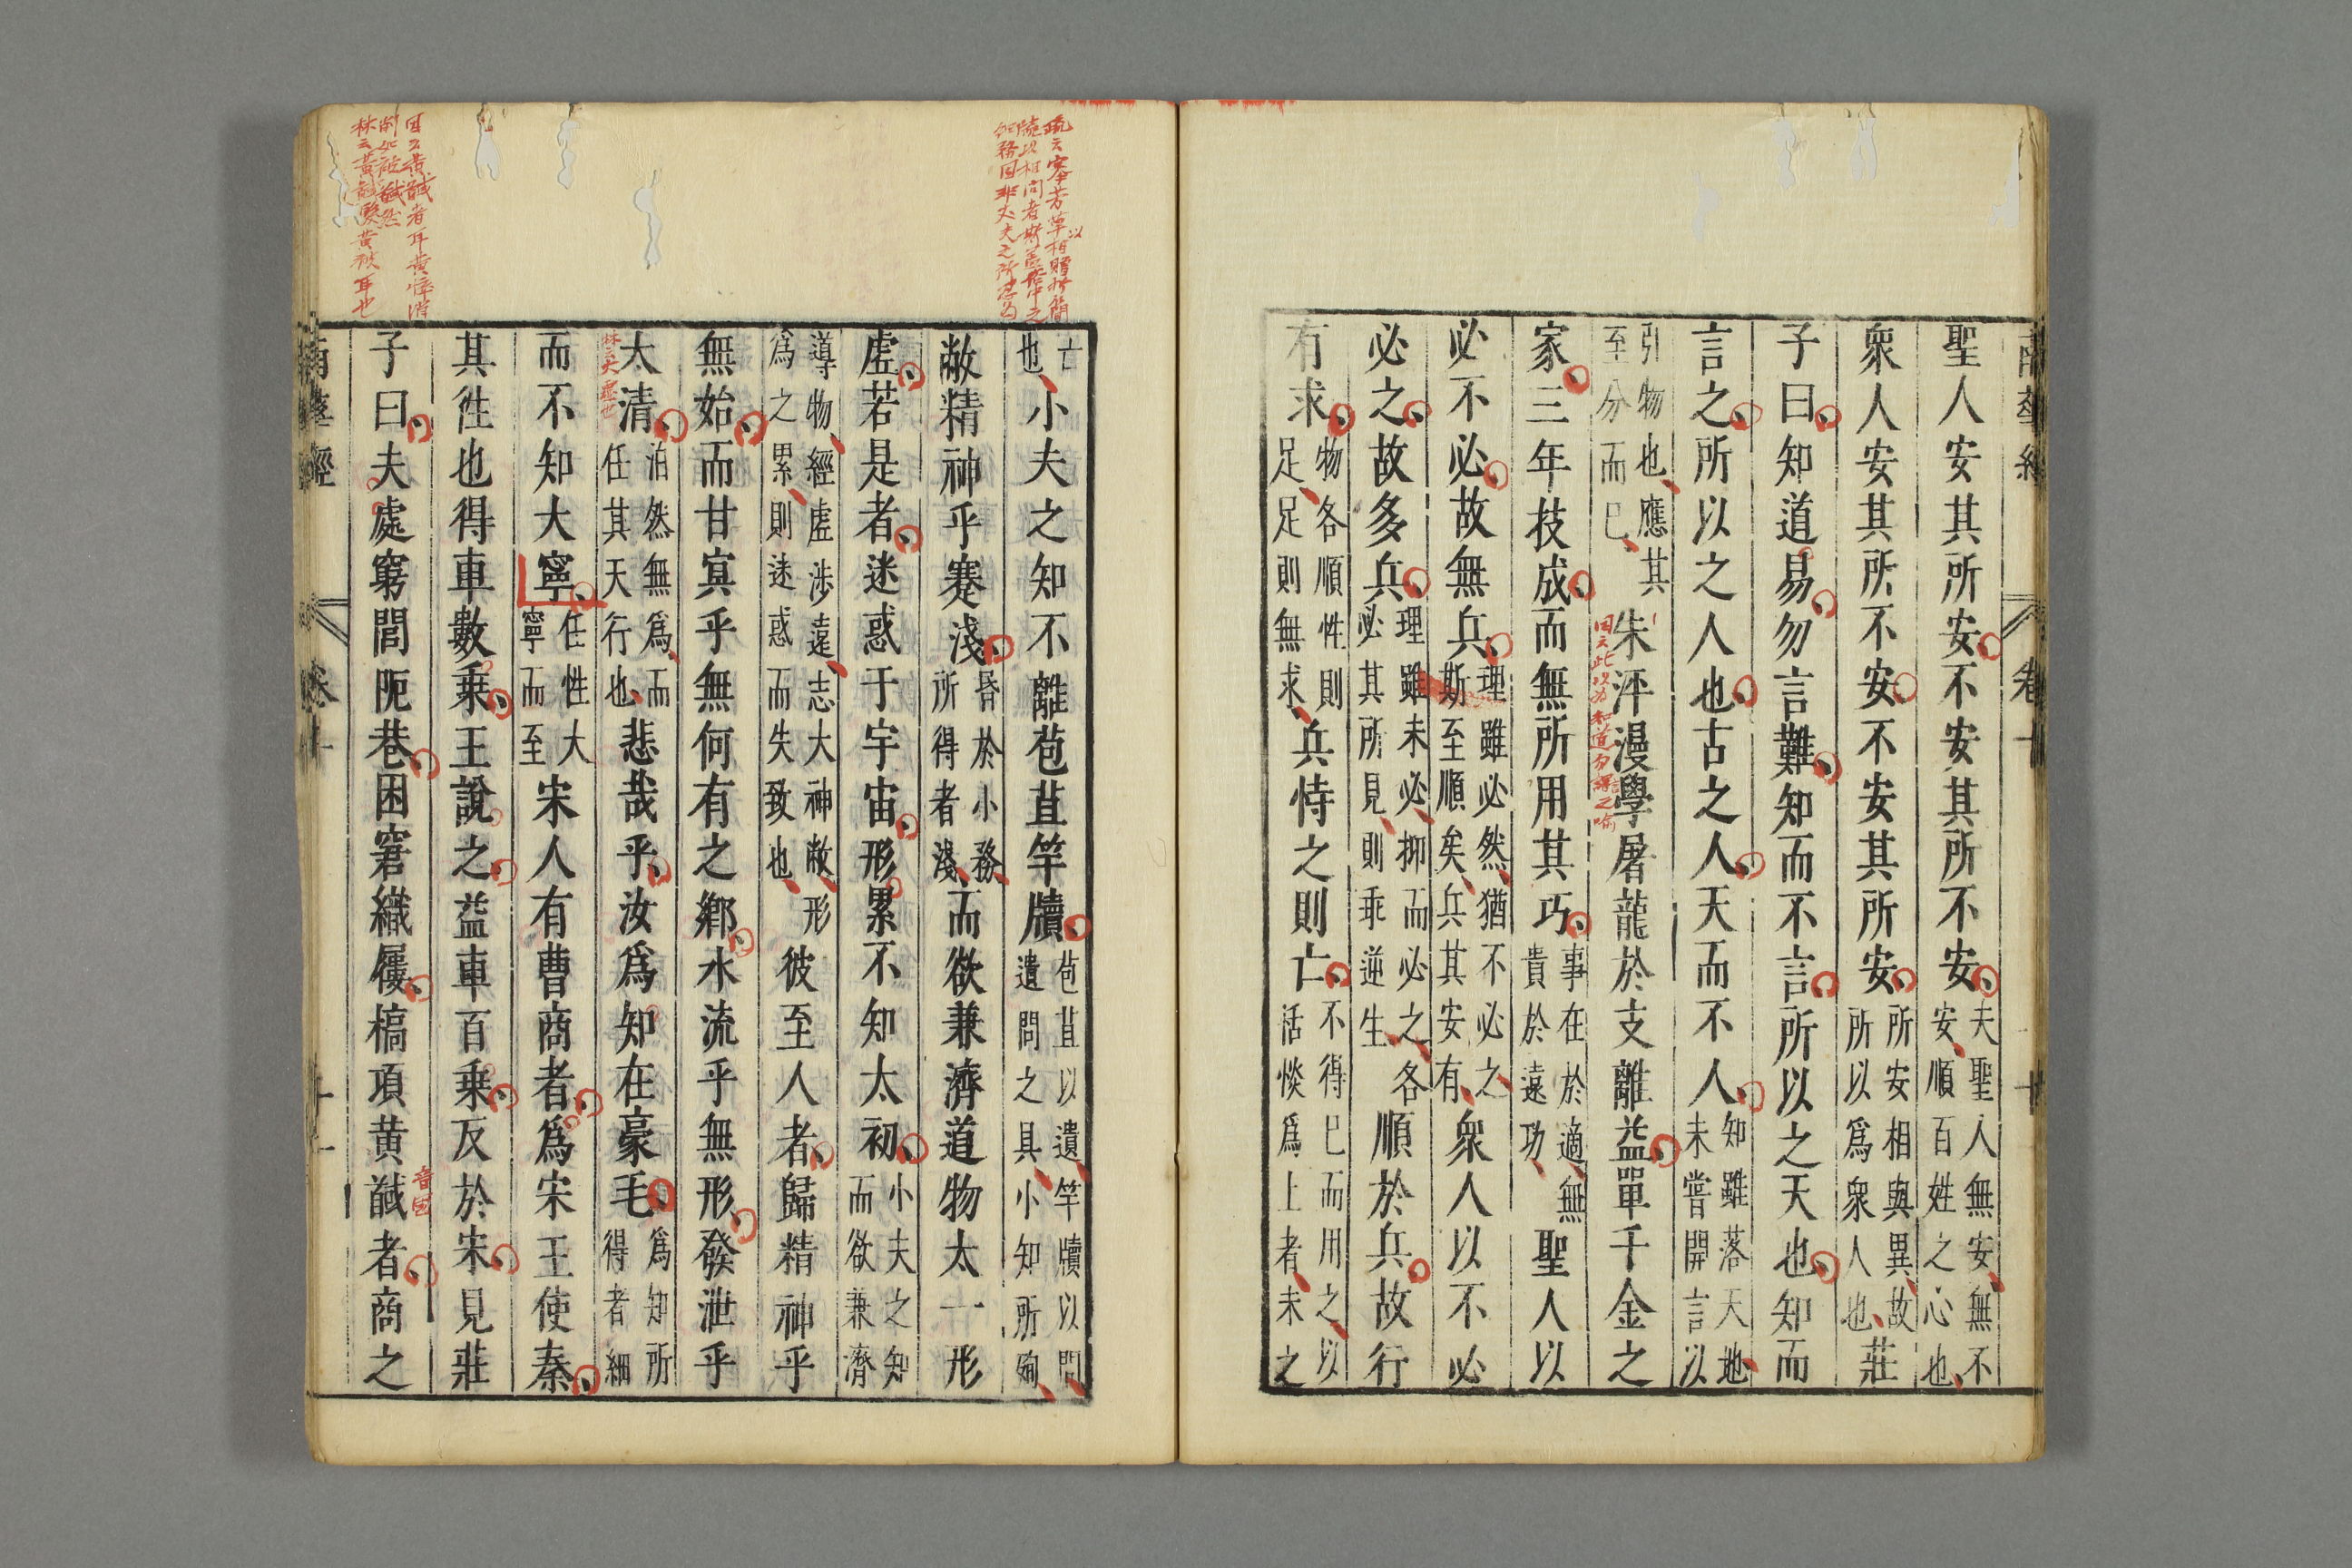 南華經 卷十 十
聖人安其所安不安其所不安夫聖人無安無不安順百姓之心也
衆人安其所不安不安其所安所安相與異故所以爲衆人也莊
子曰知道易勿言難知而不言所以之天也知而
言之所以之人也古之人天而不人知雖落天地未嘗開言以
引物也應其至分而已朱泙漫學屠龍於支離益單千金之
家三年技成而無所用其巧事在於適無貴於遠功聖人以
必不必故無兵理雖必然猶不必之斯至順矣兵其安有衆人以不必
必之故多兵理雖未必抑而必之各必其所見則乖逆生順於兵故行
有求物各順性則足足則無求兵恃之則亡不得已而用之以恬惔爲上者未之
亡也小夫之知不離苞苴竿牘苞苴以遺竿牘以問遺問之具小知所殉
敝精神乎蹇淺昏於小務所得者淺而欲兼濟道物太一形
虛若是者迷惑于宇宙形累不知太初小夫之知而欲兼濟
導物經虛涉遠志大神敝形爲之累則迷惑而失致也彼至人者歸精神乎
無始而甘冥乎無何有之鄉水流乎無形發泄乎
太清泊然無爲而任其天行也悲哉乎汝爲知在豪毛爲知所得者細
而不知大寧任性大寧而至宋人有曹商者爲宋王使秦
其徃也得車數乗王說之益車百乗反於宋見莊
子曰夫處窮閭阨巷困窘織屨槁項黄馘者商之
南華經 卷十 十一
疏云搴芳草以相贈折簡
牘以相問者斯蓋俗中之
細務固非丈夫之所忍爲
林云大虛也
音國
林云黃馘髮黃被耳也